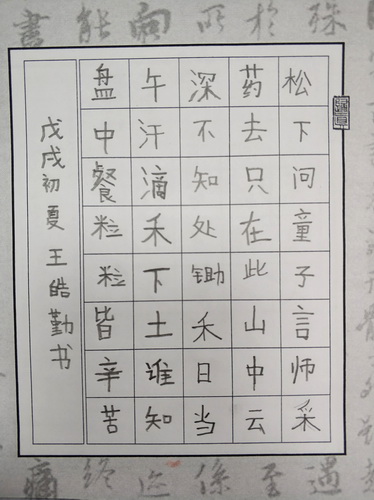 松下问童子言师采
药去只在此山中云
深不知处锄禾日当
午汗滴禾下土谁知
盘中餐粒粒皆辛苦
戊戌初夏王皓勤书